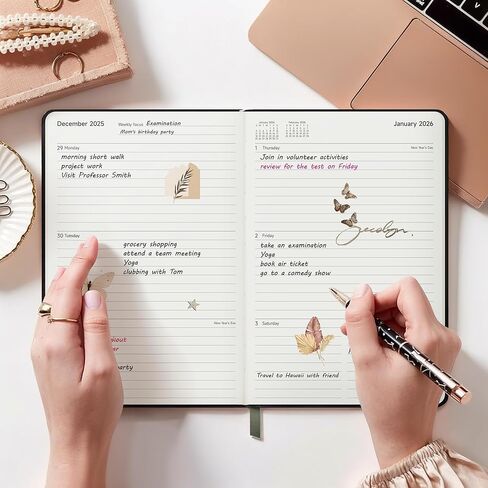 December 2025
Weekly focus Examination
Mom's birthday party
29 Monday
morning short walk
project work
Visit Professor Smith
30 Tuesday
grocery shopping
attend a team meeting
Yoga
clubbing with Tom
New Year's Eve
party
January 2026
1 Thursday
New Year's Eve
Join in volunteer activities
review for the test on Friday
2 Friday
take an examination
Yoga
book air ticket
go to a comedy show
3 Saturday
Travel to Hawaii with friend